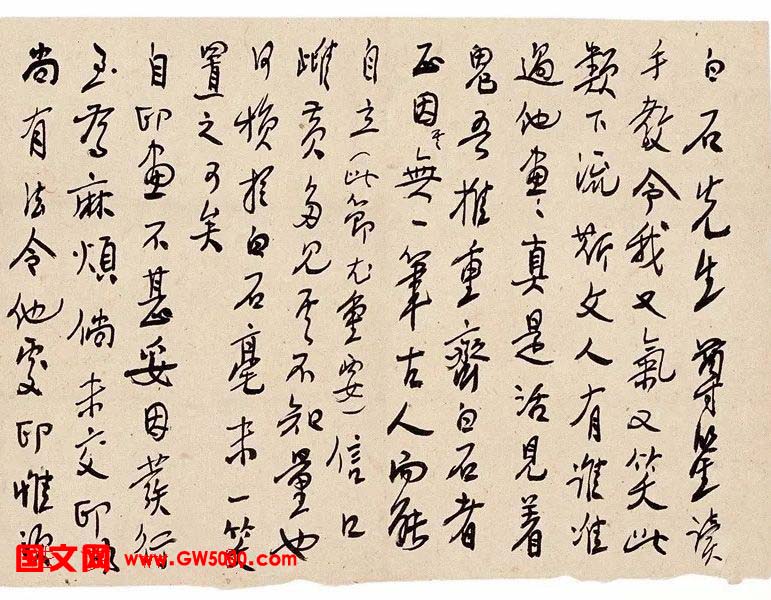 白石先生尊鉴读
手教令我又氣又笑此
類下流斯文人有誰准
過他畫〻真是活見着
鬼吾推重齊白石者
正因其無一筆古人而能
自立（此節尤重要）信口
雌黃多見其不知量也
何損於白石毫末一笑
置之可矣
自印畫不甚妥因發行
至為麻煩倘未交印
尚有法令他處印惟
国文网 www.GW5000.com